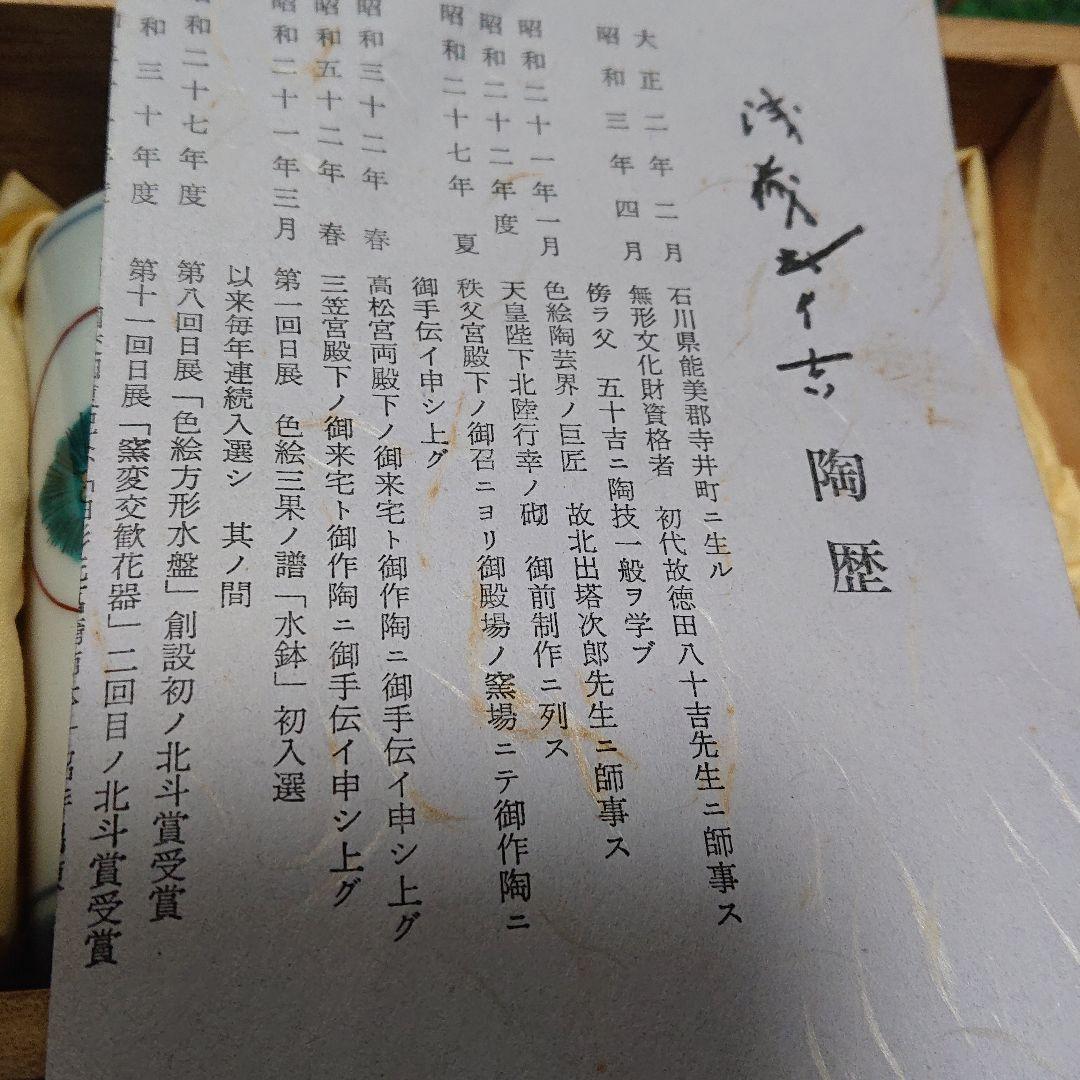 浅蔵五十吉 陶歴
大正二年二月 石川県能美郡寺井町ニ生ル
昭和三年四月 無形文化財資格者 初代故徳田八十吉先生ニ師事ス
傍ラ父 五十吉ニ陶技一般ヲ学ブ
昭和二十一年一月 色絵陶芸界ノ巨匠 故北出塔次郎先生ニ師事ス
昭和二十二年度 天皇陛下北陸行幸ノ砌 御前制作ニ列ス
昭和二十七年 夏 秩父宮殿下ノ御召ニヨリ御殿場ノ窯場ニテ御作陶ニ
御手伝イ申シ上グ
昭和三十二年 春 高松宮両殿下ノ御来宅ト御作陶ニ御手伝イ申シ上グ
昭和五十二年 春 三笠宮殿下ノ御来宅ト御作陶ニ御手伝イ申シ上グ
昭和二十一年三月 第一回日展 色絵三果ノ譜「水鉢」初入選
以来毎年連続入選シ 其ノ間
和二十七年度 第八回日展「色絵方形水盤」創設初ノ北斗賞受賞
和三十年度 第十一回日展「窯変交歓花器」二回目ノ北斗賞受賞